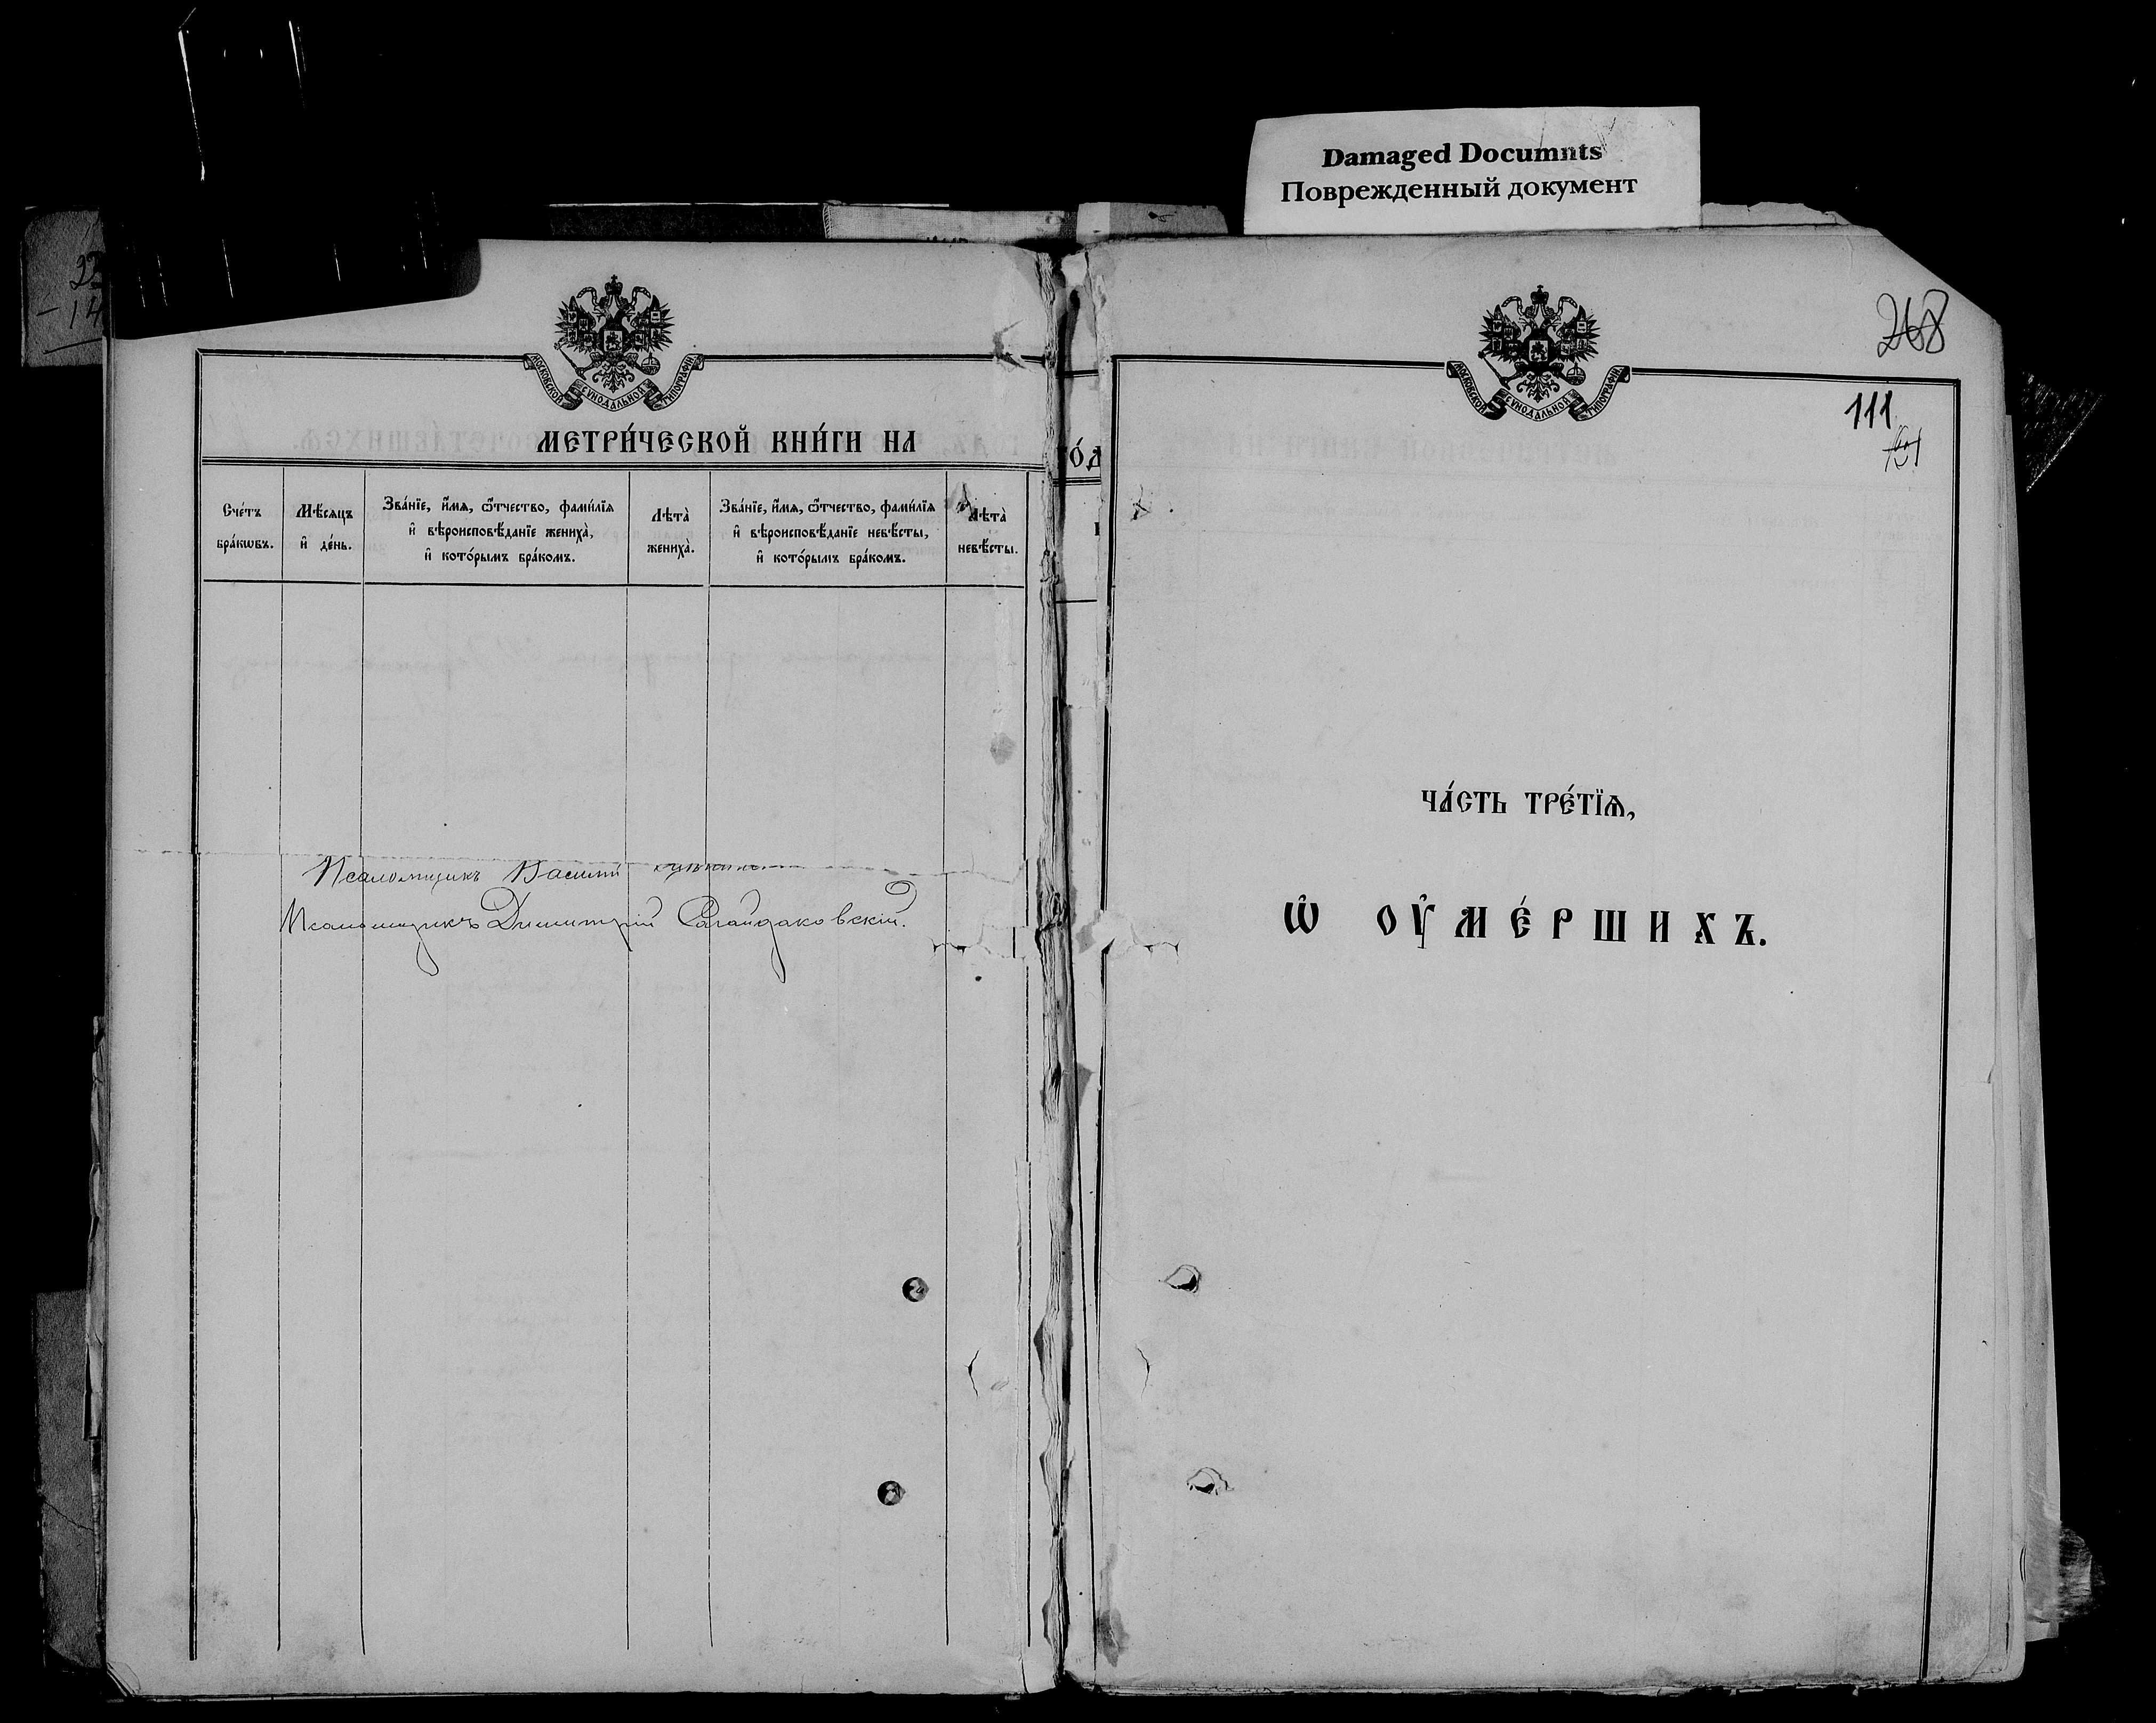 Damaged Documnts
Поврежденный документ
22
- 14
МОСКОВСКОЙ СѴНОДАЛЬНОЙ ТИПОГРАФІИ.
МЕТРИ́ЧЕСКОЙ КНИ́ГИ НА
Сче́тъ бра́кѡвъ.
Мѣ́сяцъ и҆ де́нь.
Зва́нїе, и҆́мѧ, ѻ҆́тчество, фами́лїѧ и҆ вѣроисповѣ́данїе жениха̀, и҆ кото́рымъ бра́комъ.
Лѣта̀ жениха̀.
Зва́нїе, и҆́мѧ, ѻ҆́тчество, фами́лїѧ и҆ вѣроисповѣ́данїе невѣ́сты, и҆ кото́рымъ бра́комъ.
Лѣта̀ невѣ́сты.
Псаломщикъ Василій
Псаломщикъ Димитрій Сагайдаковскій.
о́д
268
МОСКОВСКОЙ СѴНОДАЛЬНОЙ ТИПОГРАФІИ.
111
ЧА́СТЬ ТРЕ́ТЇѦ,
Ѡ҆ ОУ҆МЕ́РШИХЪ.